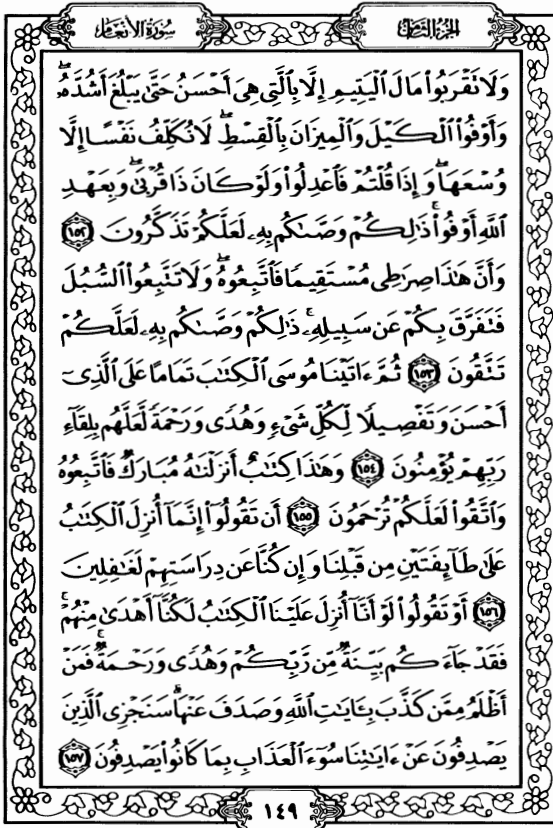 سُورَةُ الأَنْعَام
الجُزْءُ الثَّامِنُ
وَلَا تَقْرَبُوا۟ مَالَ ٱلْيَتِيمِ إِلَّا بِٱلَّتِى هِىَ أَحْسَنُ حَتَّىٰ يَبْلُغَ أَشُدَّهُۥۖ
وَأَوْفُوا۟ ٱلْكَيْلَ وَٱلْمِيزَانَ بِٱلْقِسْطِۖ لَا نُكَلِّفُ نَفْسًا إِلَّا
وُسْعَهَاۖ وَإِذَا قُلْتُمْ فَٱعْدِلُوا۟ وَلَوْ كَانَ ذَا قُرْبَىٰۖ وَبِعَهْدِ
ٱللَّهِ أَوْفُوا۟ۚ ذَٰلِكُمْ وَصَّىٰكُم بِهِۦ لَعَلَّكُمْ تَذَكَّرُونَ ١٥٢
وَأَنَّ هَٰذَا صِرَٰطِى مُسْتَقِيمًا فَٱتَّبِعُوهُۖ وَلَا تَتَّبِعُوا۟ ٱلسُّبُلَ
فَتَفَرَّقَ بِكُمْ عَن سَبِيلِهِۦۚ ذَٰلِكُمْ وَصَّىٰكُم بِهِۦ لَعَلَّكُمْ
تَتَّقُونَ ١٥٣ ثُمَّ ءَاتَيْنَا مُوسَى ٱلْكِتَٰبَ تَمَامًا عَلَى ٱلَّذِىٓ
أَحْسَنَ وَتَفْصِيلًا لِّكُلِّ شَىْءٍ وَهُدًى وَرَحْمَةً لَّعَلَّهُم بِلِقَآءِ
رَبِّهِمْ يُؤْمِنُونَ ١٥٤ وَهَٰذَا كِتَٰبٌ أَنزَلْنَٰهُ مُبَارَكٌ فَٱتَّبِعُوهُ
وَٱتَّقُوا۟ لَعَلَّكُمْ تُرْحَمُونَ ١٥٥ أَن تَقُولُوٓا۟ إِنَّمَآ أُنزِلَ ٱلْكِتَٰبُ
عَلَىٰ طَآئِفَتَيْنِ مِن قَبْلِنَا وَإِن كُنَّا عَن دِرَاسَتِهِمْ لَغَٰفِلِينَ
١٥٦ أَوْ تَقُولُوا۟ لَوْ أَنَّآ أُنزِلَ عَلَيْنَا ٱلْكِتَٰبُ لَكُنَّآ أَهْدَىٰ مِنْهُمْۚ
فَقَدْ جَآءَكُم بَيِّنَةٌ مِّن رَّبِّكُمْ وَهُدًى وَرَحْمَةٌۚ فَمَنْ
أَظْلَمُ مِمَّن كَذَّبَ بِـَٔايَٰتِ ٱللَّهِ وَصَدَفَ عَنْهَاۗ سَنَجْزِى ٱلَّذِينَ
يَصْدِفُونَ عَنْ ءَايَٰتِنَا سُوٓءَ ٱلْعَذَابِ بِمَا كَانُوا۟ يَصْدِفُونَ ١٥٧
١٤٩